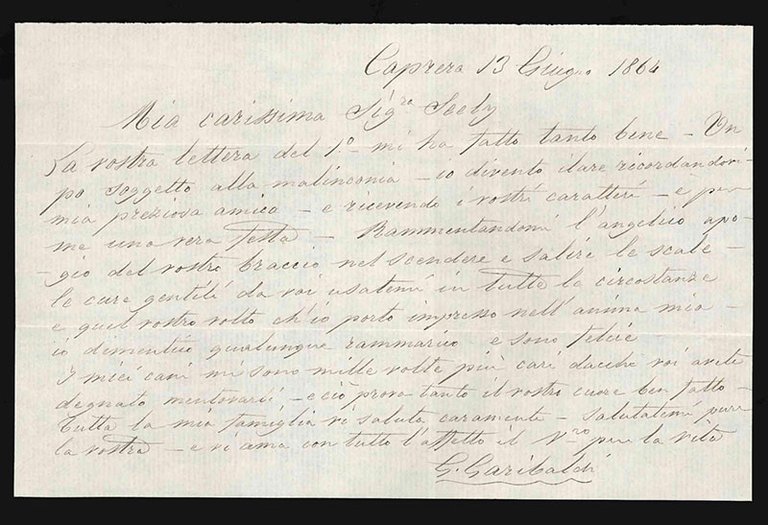 Caprera 13 Giugno 1864
Mia carissima Sig.ra Seely
La vostra lettera del 1° mi ha fatto tanto bene – Un
po soggetto alla malinconia – io divento ilare ricordandovi
mia preziosa amica – e ricevendo i vostri caratteri – è per
me una vera festa – Rammentandomi l'angelico apo-
-gio del vostro braccio nel scendere e salire le scale –
le cure gentili da voi usatemi in tutte le circostanze
e quel vostro volto ch'io porto impresso nell'anima mia –
io dimentico qualunque rammarico e sono felice
I miei cani mi sono mille volte più cari dacche voi avete
degnato mentovarli – e ciò prova tanto il vostro cuore ben fatto –
Tutta la mia famiglia vi saluta caramente – salutatemi pure
la vostra – e vi ama con tutto l'affetto il V.ro per la vita
G. Garibaldi